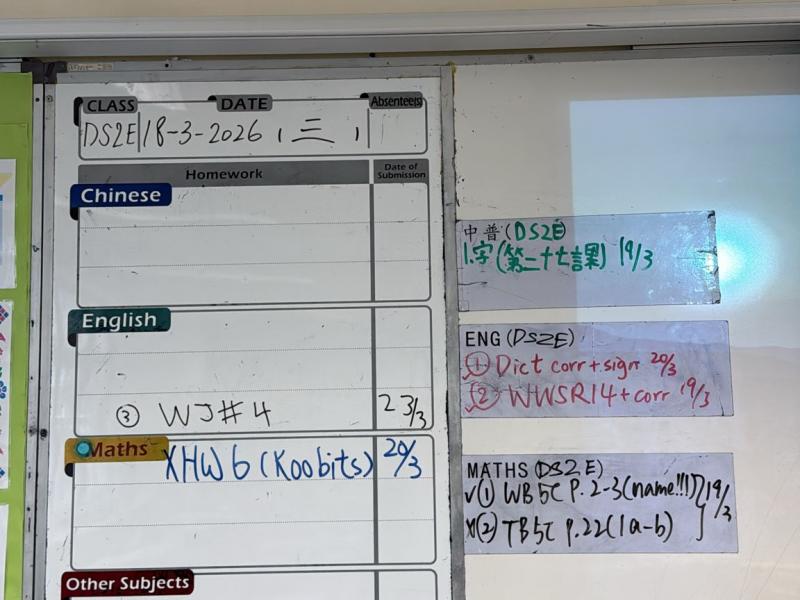 CLASS DATE Absentee(s)
DS2E 18-3-2026 ( 三 )
Homework Date of Submission
Chinese
English
③ WJ#4 23/3
Maths
XHW6 (Koobits) 20/3
Other Subjects
中普 (DS2E)
1.字 (第二十七課) 19/3
ENG (DS2E)
① Dict corr + sign 20/3
② WWSR14 + corr 19/3
MATHS (DS2E)
√(1) WB5C P.2-3 (name!!!) 19/3
(2) TB5C P.22 (1a-b)